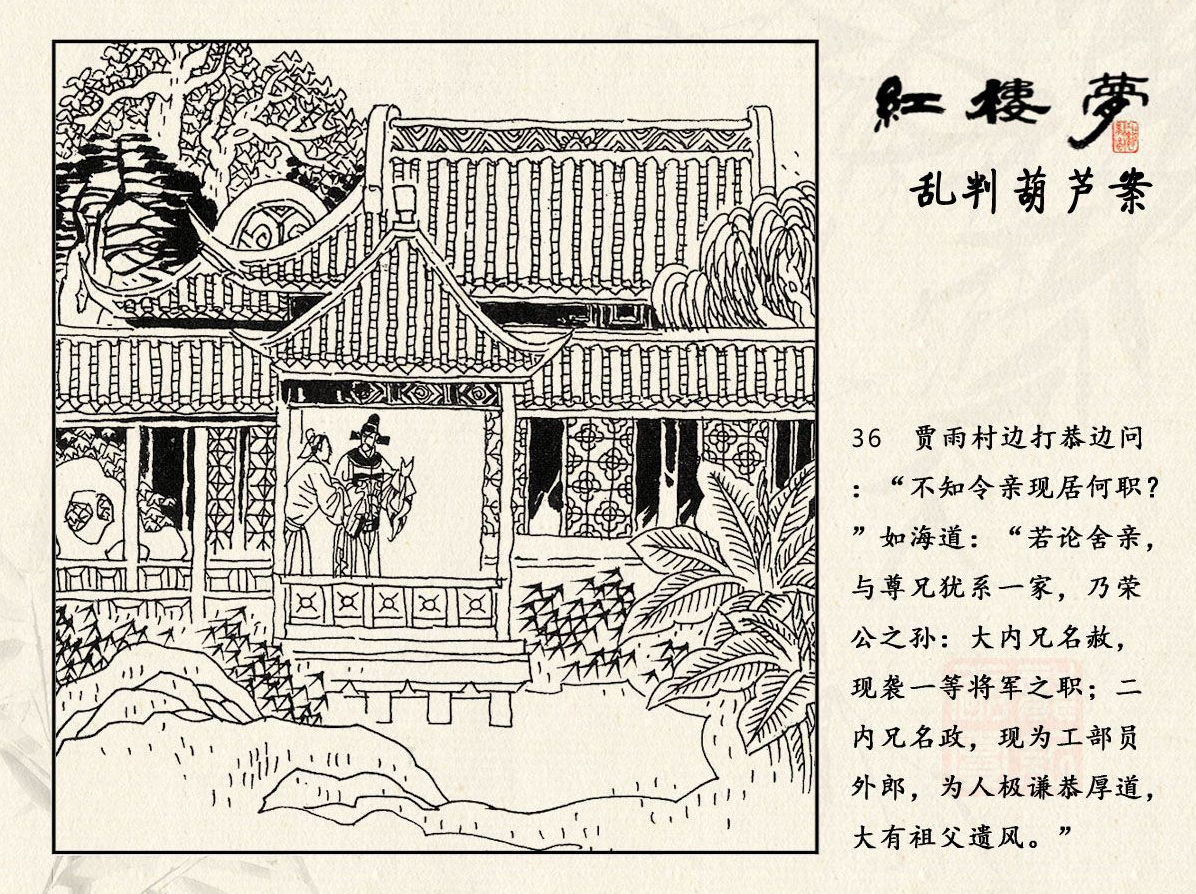 紅樓夢
乱判葫芦案
36 贾雨村边打恭边问
：“不知令亲现居何职？
”如海道：“若论舍亲，
与尊兄犹系一家，乃荣
公之孙：大内兄名赦，
现袭一等将军之职；二
内兄名政，现为工部员
外郎，为人极谦恭厚道，
大有祖父遗风。”